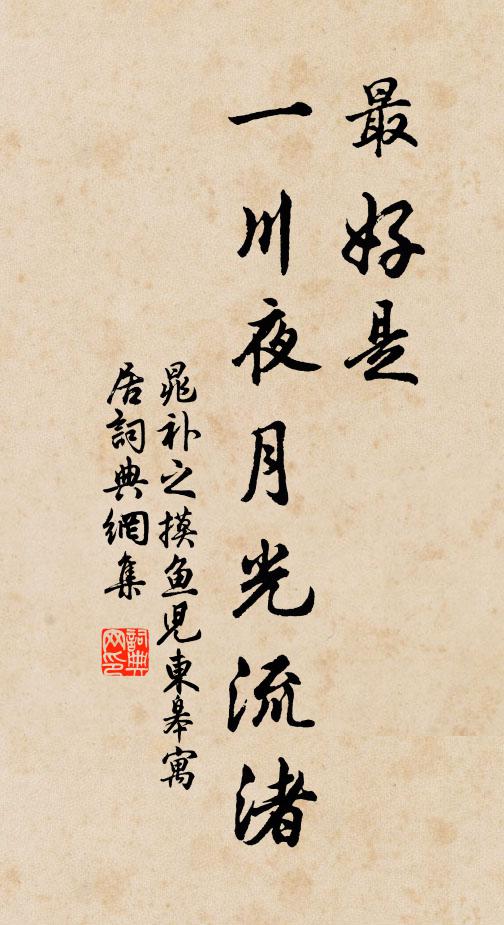 最好是
一川夜月光流渚
晁补之摸鱼児東皋寓
居詞典網集
詞典
网印